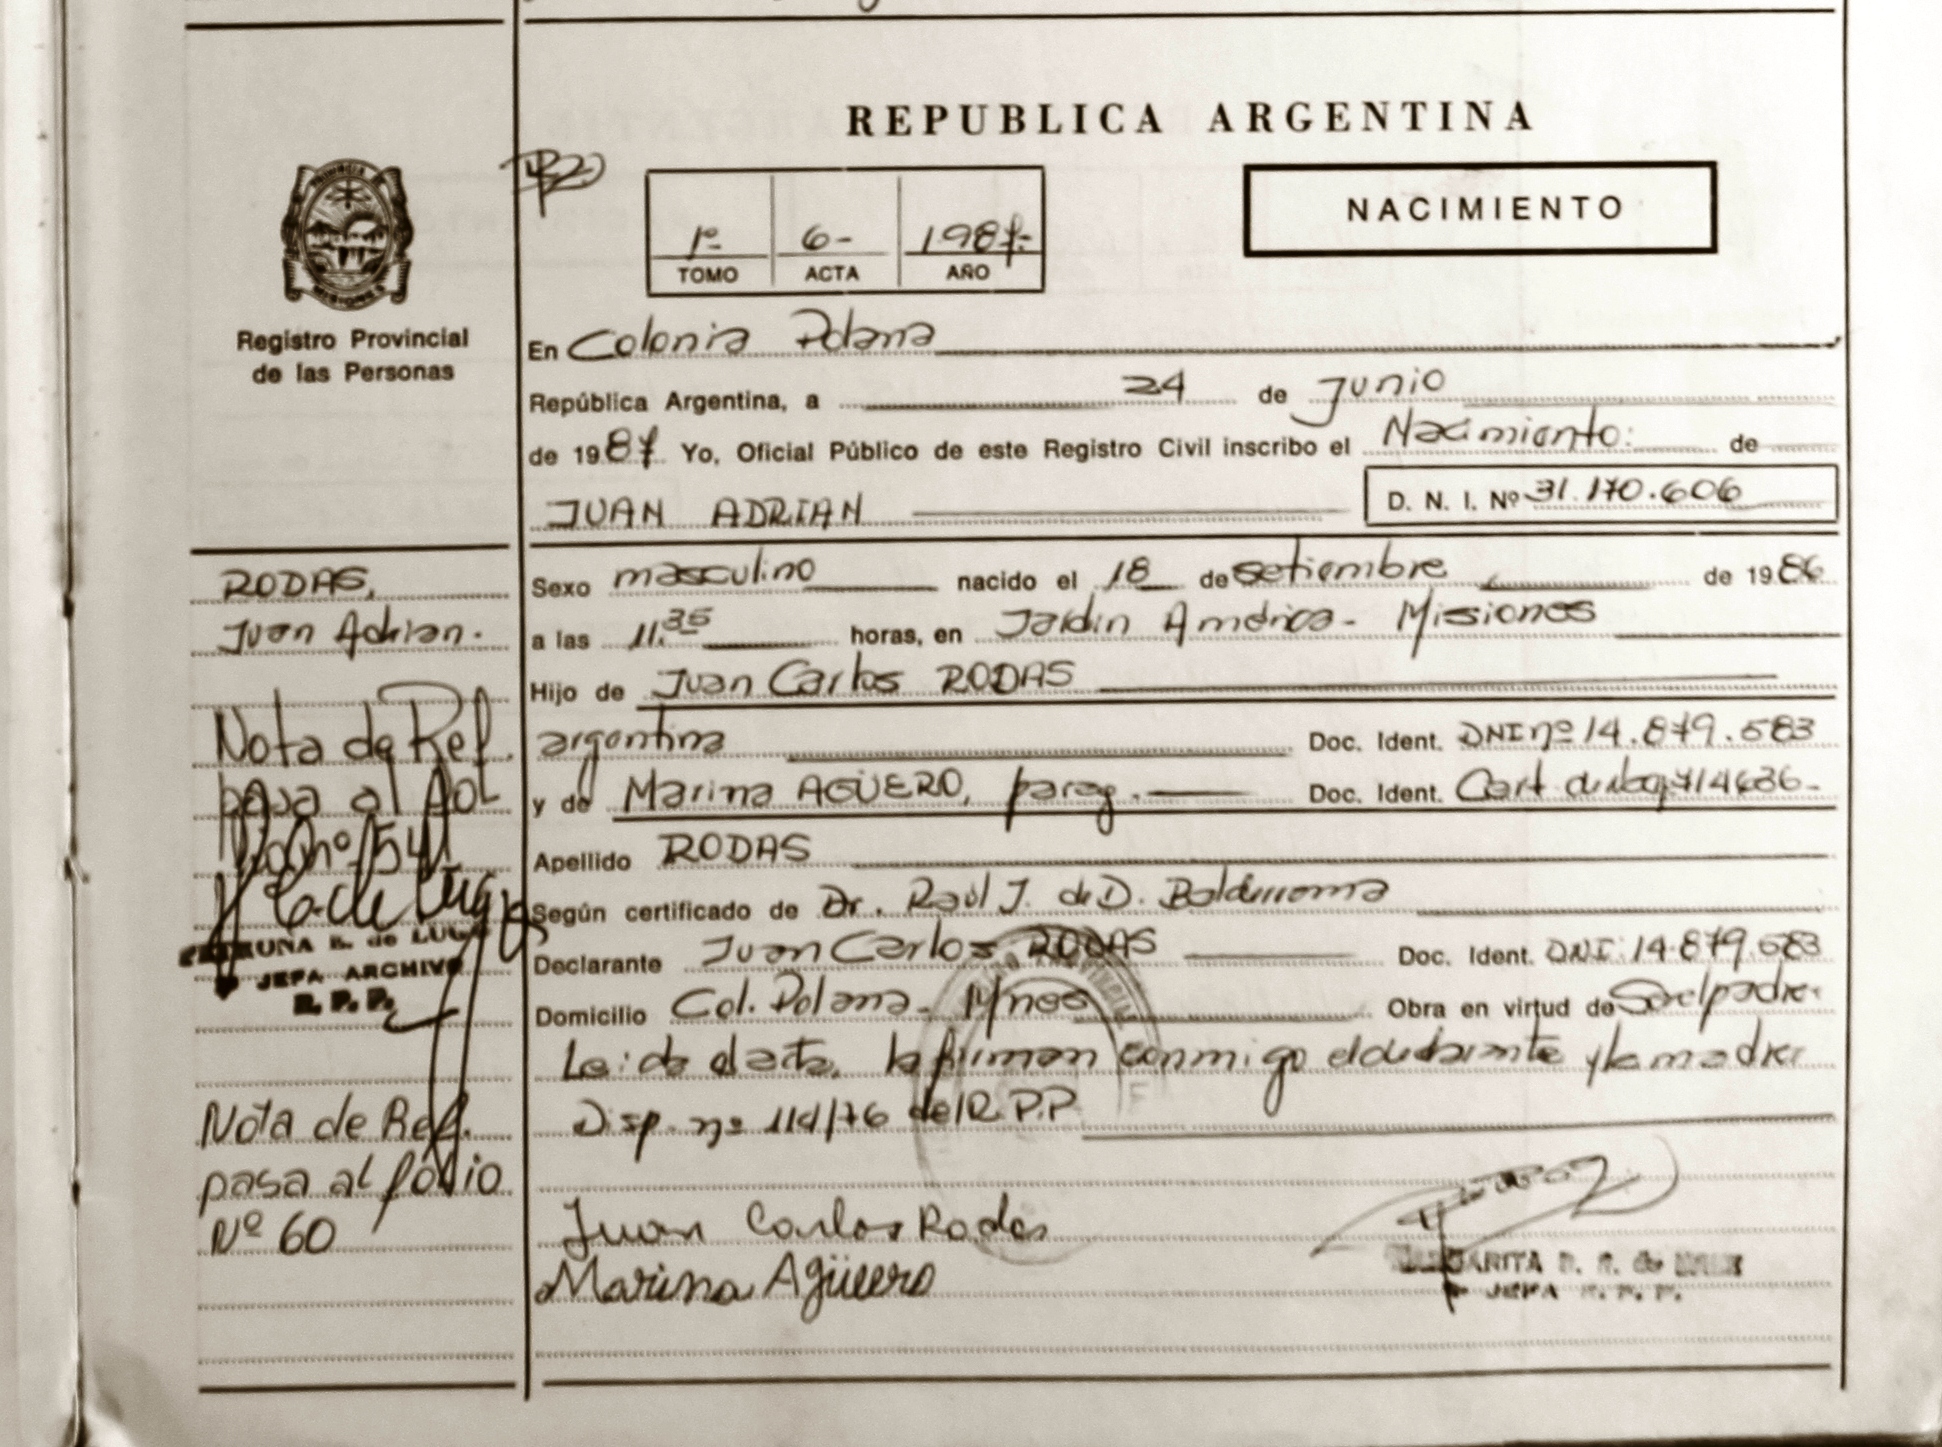 REPUBLICA ARGENTINA
NACIMIENTO
1º 6- 1987-
TOMO ACTA AÑO
PROVINCIA DE
MISIONES
Registro Provincial
de las Personas
En Colonia Polana
República Argentina, a 24 de Junio
de 1987 Yo, Oficial Público de este Registro Civil inscribo el Nacimiento: de
JUAN ADRIAN D. N. I. Nº 31.170.606
RODAS,
Juan Adrian.
Sexo masculino nacido el 18 de setiembre de 1986
a las 11.35 horas, en Jardin América - Misiones
Hijo de Juan Carlos RODAS
argentina Doc. Ident. DNI nº 14.879.583
y de Marina AGÜERO, parag. Doc. Ident. Cart 714636-
Apellido RODAS
Según certificado de Dr. Raúl J. de D.
Declarante Juan Carlos RODAS Doc. Ident. DNI: 14.879.583
Domicilio Col. Polana - Mnes Obra en virtud de Ser el padre.
Leida el acta, la firman conmigo el declarante y la madre.
Disp. nº 114/76 del R.P.P.
Juan Carlos Rodas
Marina Agüero
MARGARITA
JEFA R. P. P.
Nota de Ref.
pasa al fol
nº 54
de LUGO
JEFA ARCHIVO
R. P. P.
Nota de Ref.
pasa al folio
Nº 60